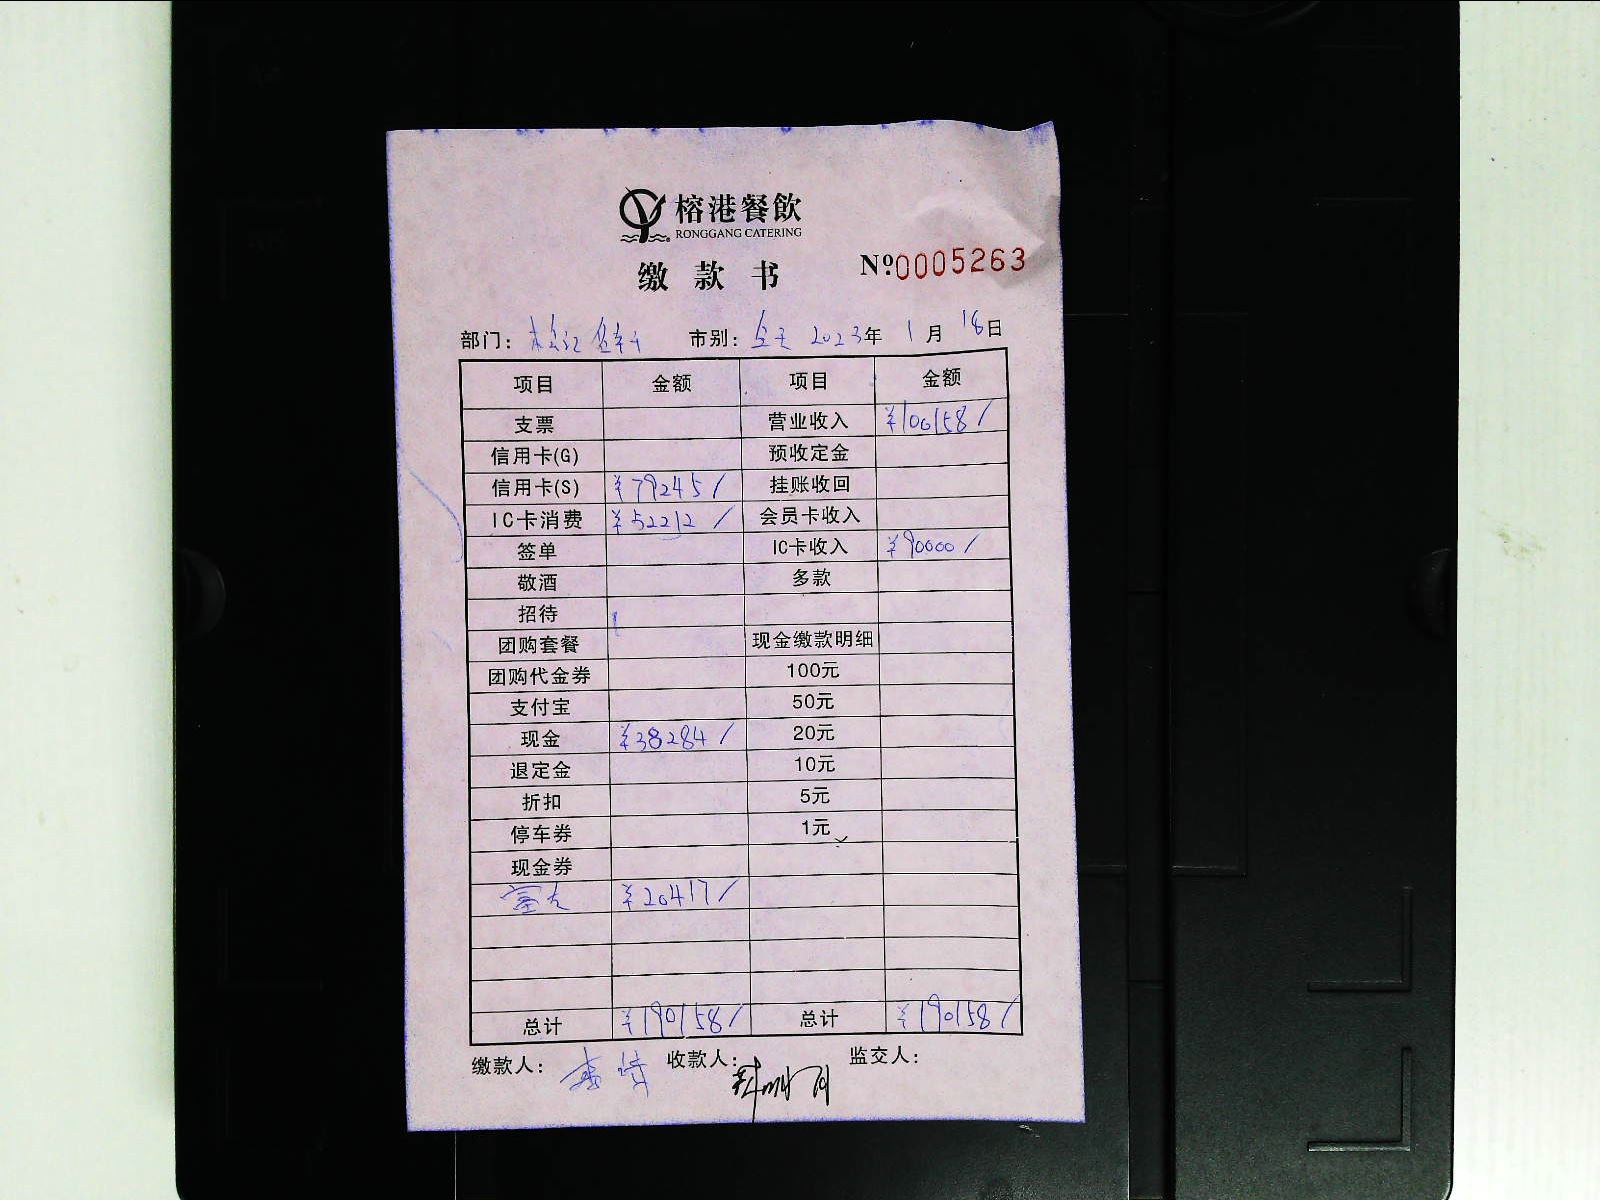 榕港餐飲
RONGGANG CATERING
缴款书 Nº0005263
部门： 市别： 全天 2023年 1月 18日
项目 金额 项目 金额
支票 营业收入 ¥100158/
信用卡(G) 预收定金
信用卡(S) ¥79245/ 挂账收回
IC卡消费 ¥52212/ 会员卡收入
签单 IC卡收入 ¥90000/
敬酒 多款
招待
团购套餐 现金缴款明细
团购代金券 100元
支付宝 50元
现金 ¥38284/ 20元
退定金 10元
折扣 5元
停车券 1元
现金券
¥20417/
总计 ¥190158/ 总计 ¥190158/
缴款人： 收款人： 监交人：